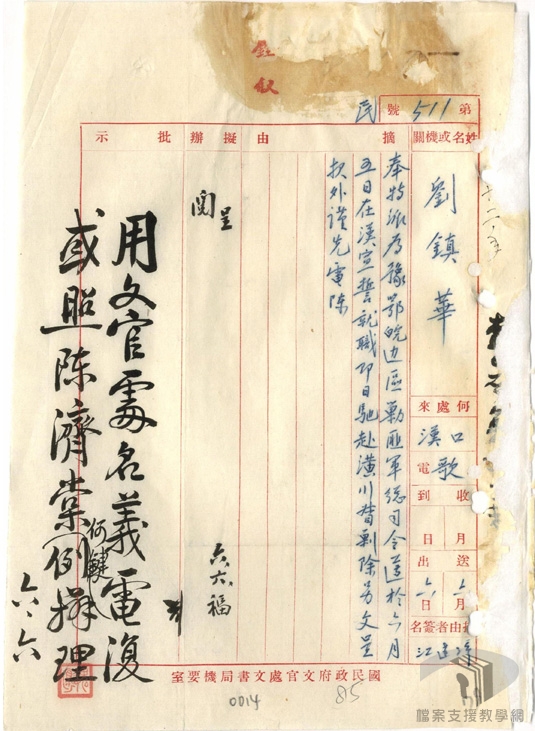 第511號
民
敍
姓名或機關
劉鎮華
何處來
漢口
歌電
收到
月
日
送出
六月
六日
摘由者簽名
摘由
奉特派為豫鄂皖边區剿匪軍總司令遵於六月
五日在漢宣誓就職即日馳赴潢川督剿除另文呈
报外謹先電陳
擬辦
呈
閱
六、六、福
批示
用文官處名義電復
或照陈濟棠何鍵例辦理
六、六
國民政府文官處文書局機要室
0014
85
檔案支援教學網